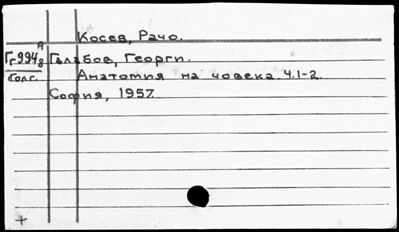 Косев, Рачо.
Гг994 А/8 Гълъбов, Георги.
Болг. Анатомия на човека. Ч.1-2.
София, 1957.
+